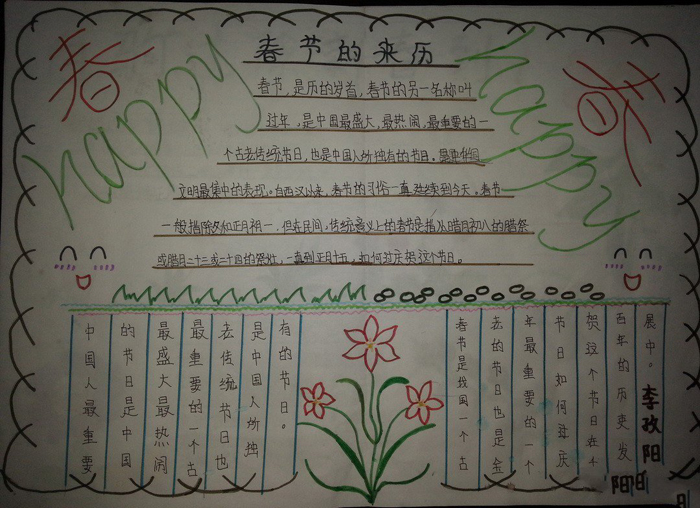 春节的来历
春
happy
春
happy
春节,是历的岁首,春节的另一名称叫
过年,是中国最盛大,最热闹,最重要的一
个古老传统节日,也是中国人所独有的节日。是中华
文明最集中的表现。自西汉以来,春节的习俗一直延续到今天。春节
一般指除夕和正月初一,但在民间,传统意义上的春节是指从腊月初八的腊祭
或腊月二十三或二十四的祭灶,一直到正月十五,如何过庆贺这个节日。
中国人最重要
的节日是中国
最盛大最热闹
最重要的一个古
老传统节日也
是中国人所独
有的节日。
春节是我国一个古
老的节日也是全
年最重要的一个
节日如何过庆
贺这个节日在千
百年的历史发
展中。
李政阳
阳